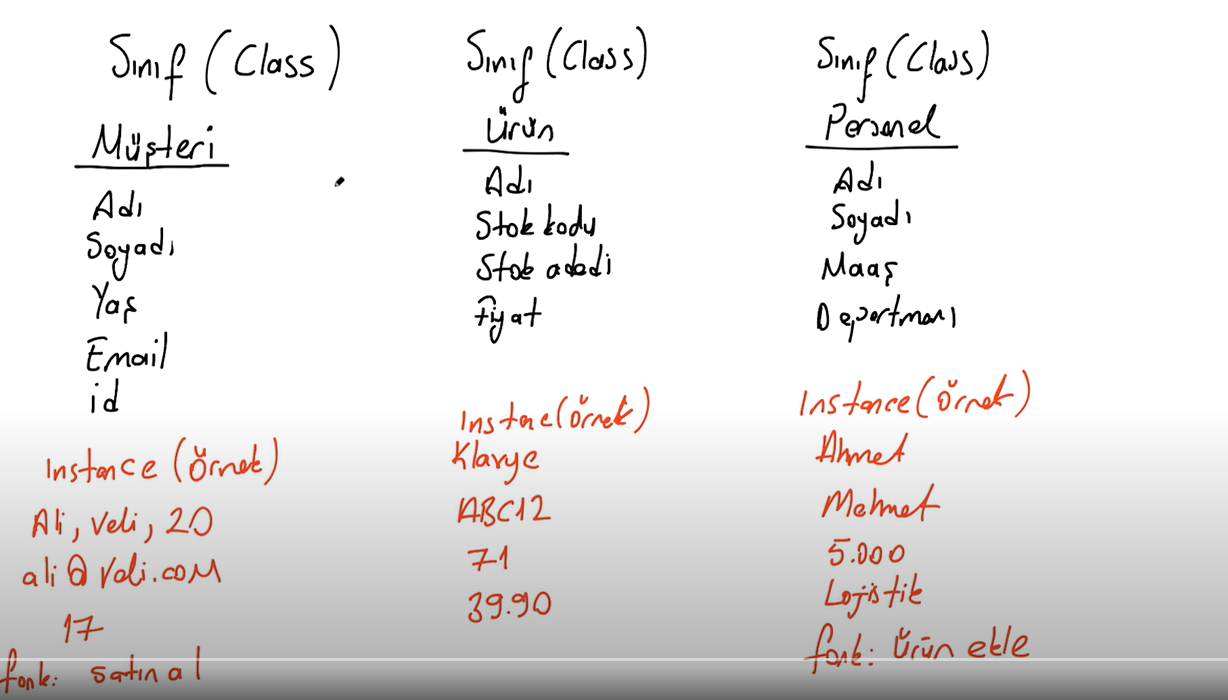 Sınıf (Class)
Müşteri
Adı
Soyadı
Yaş
Email
id
Instance (Örnek)
Ali, Veli, 20
ali@Veli.com
17
fonk: satın al
Sınıf (Class)
Ürün
Adı
Stok kodu
Stok adedi
Fiyat
Instace (Örnek)
Klavye
ABC12
71
39.90
Sınıf (Class)
Personel
Adı
Soyadı
Maaş
Departmanı
Instance (Örnek)
Ahmet
Mehmet
5.000
Lojistik
fonk: Ürün ekle